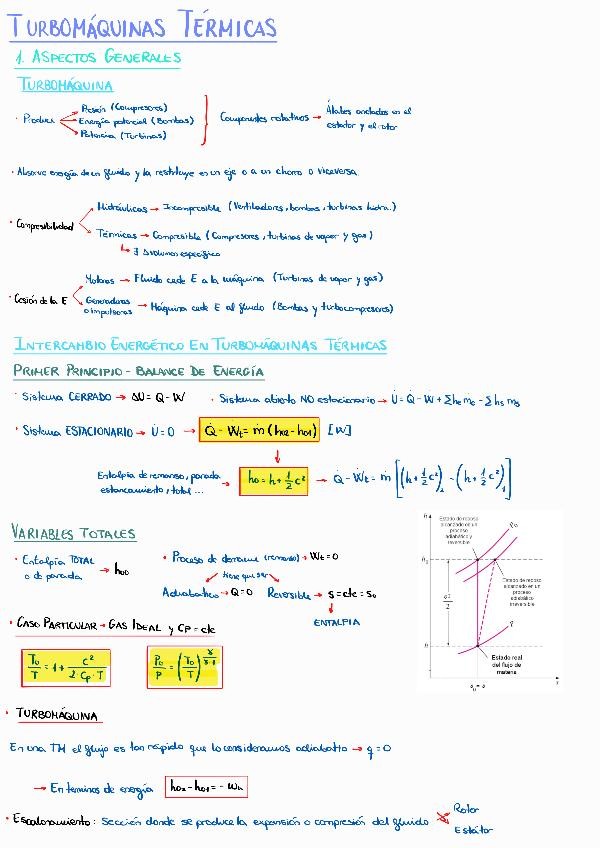 TURBOMÁQUINAS TÉRMICAS
1. ASPECTOS GENERALES
TURBOMÁQUINA
· Produce
Presión (Compresores)
Energía potencial (Bombas)
Potencia (Turbinas)
Componentes rotativos → Álabes anclados en el
estator y el rotor
· Absorve energía de un fluido y la restituye en un eje o a un chorro o viceversa
· Compresibilidad
Hidráulicas → Incompresible (Ventiladores, bombas, turbinas hidra.)
Térmicas → Compresible (Compresores, turbinas de vapor y gas)
↳ ∃ Δvolumen específico
· Cesión de la E
Motoras → Fluido cede E a la máquina (Turbinas de vapor y gas)
Generadoras
o impulsoras → Máquina cede E al fluido (Bombas y turbocompresores)
INTERCAMBIO ENERGÉTICO EN TURBOMÁQUINAS TÉRMICAS
PRIMER PRINCIPIO - BALANCE DE ENERGÍA
· Sistema CERRADO → ΔU = Q - W
· Sistema abierto NO estacionario → U̇ = Q̇ - Ẇ + Σhe ṁe - Σhs ṁs
· Sistema ESTACIONARIO → U̇ = 0 → Q̇ - Ẇt = ṁ (h02 - h01) [W]
Entalpía de remanso, parada
estancamiento, total ... → h0 = h + 1/2 c² → Q̇ - Ẇt = ṁ [(h + 1/2 c²)2 - (h + 1/2 c²)1]
VARIABLES TOTALES
· Entalpía TOTAL
o de parada → h00
· Proceso de derrame (remanso) → Wt = 0
tiene que ser
Adiabático → Q = 0 Reversible → s = cte = s0
ENTALPIA
· CASO PARTICULAR → GAS IDEAL y CP = cte
T0/T = 1 + c²/(2·Cp·T)
P0/P = (T0/T)^(γ/(γ-1))
h
Estado de reposo
alcanzado en un
proceso
adiabático y
reversible
h0
Estado de reposo
alcanzado en un
proceso
adiabático
irreversible
c²/2
h
Estado real
del flujo de
materia
s0 = s
· TURBOMÁQUINA
En una TM el flujo es tan rápido que lo consideramos adiabático → q = 0
→ En terminos de energía h02 - h01 = - Wu
· Escalonamiento: Sección donde se produce la expansión o compresión del fluido
Rotor
Estátor